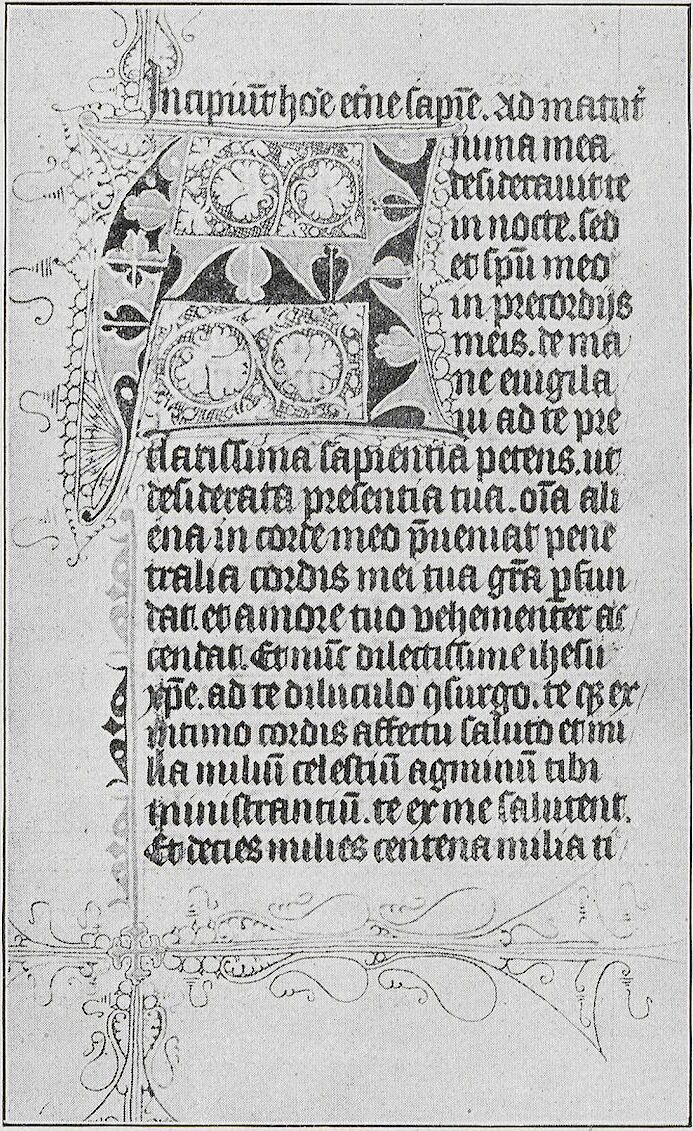 Incipiūt hoē etīne sapīe. Ad matut̄
A nima mea
desiderauit te
in nocte. sed
et spū meo
in precordijs
meis. de ma
ne euigila
ui ad te pre
clarissima sapientia petens. ut
desiderata presentia tua. oīa ali
ena in corde meo p̄ueniat pene
tralia cordis mei tua gr̄a pfun
dat. et amore tuo vehementer ac
cendat. Et nūc dilectissime ihesu
xp̄e. ad te diluculo ꝯsurgo. te qꝫ ex
intimo cordis affectu saluto et mi
lia miliū celestiū agminū tibi
ministrantiū. te ex me salutent.
Et decies milies centena milia ti